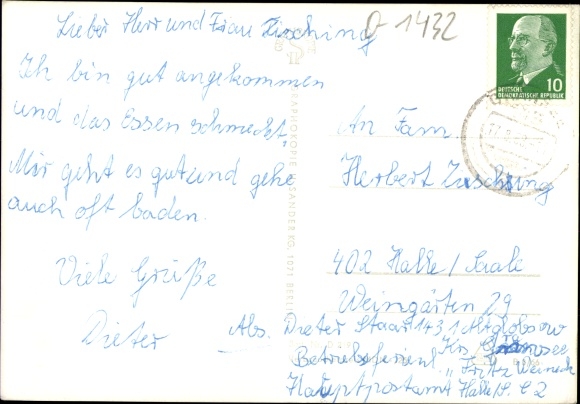 Lieber Herr und Frau Zisching
Q 1432
Ich bin gut angekommen
und das Essen schmeckt.
Mir geht es gut und gehe
auch oft baden.
Viele Grüße
Dieter
10
DEUTSCHE
DEMOKRATISCHE REPUBLIK
An Fam.
Herbert Zisching
402 Halle/Saale
Weingärten 29
Abs. Dieter Staar 1431 Altglobsow
Krs. Gransee
Betriebsferienl. "Fritz Weineck
Hauptpostamt Halle/S. C2
KG, 1071 BERLIN